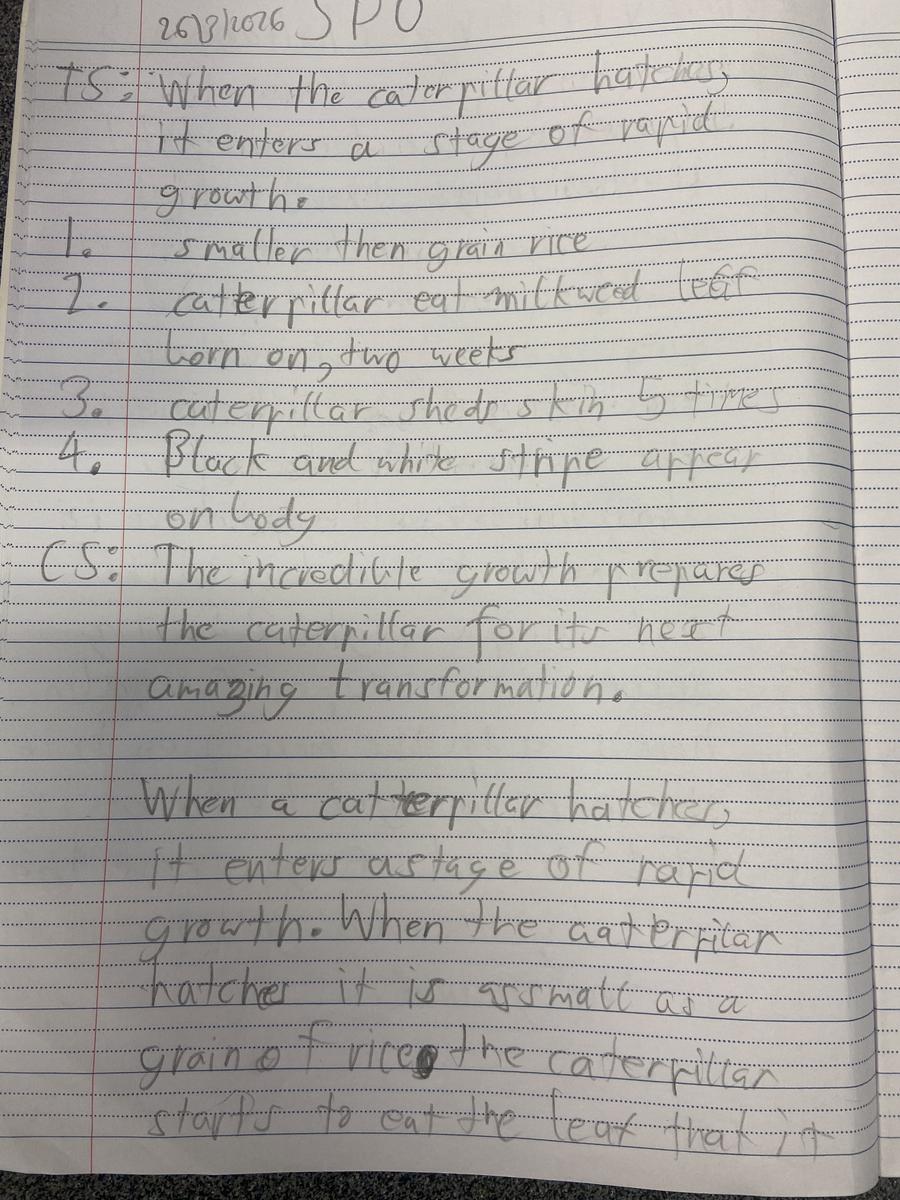 26/3/2026 SPO
TS: When the caterpillar hatches,
it enters a stage of rapid
growth.
1. smaller then grain rice
2. catterpillar eat milkweed leaf
born on, two weeks
3. caterpillar sheds skin 5 times
4. Black and white stripe appear
on body
CS: The incredible growth prepares
the caterpillar for its next
amazing transformation.
When a catterpillar hatches,
it enters a stage of rapid
growth. When the caterpilar
hatches it is as small as a
grain of rice, the caterpillar
starts to eat the leaf that it